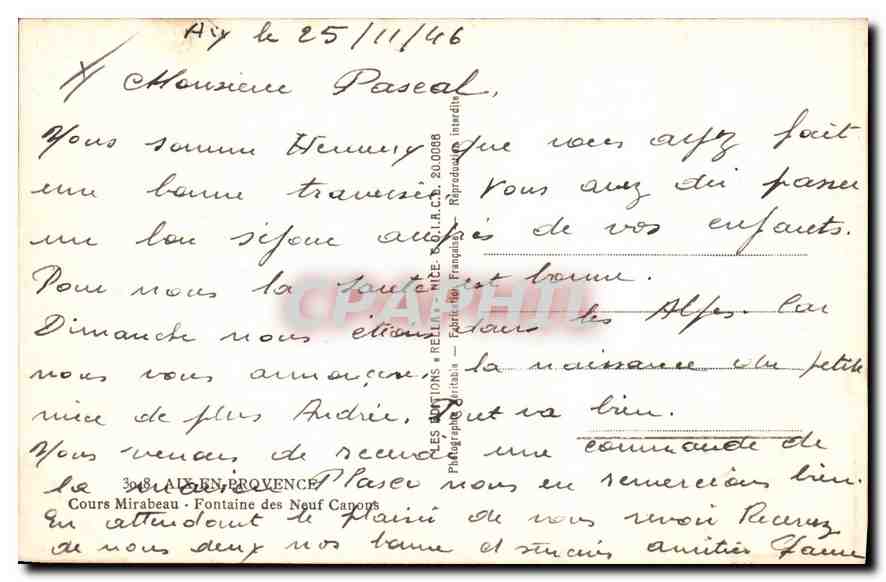 Aix le 25/11/46
Monsieur Pascal,
Nous somme Heureux que vous ayez fait
une bonne traversé. Vous avez du passer
un bon séjour auprès de vos enfants.
Pour nous la santé est bonne.
Dimanche nous étions dans les Alpes. Car
nous vous annonçons la naissance du petite
nièce de plus Andrée. Tout va bien.
Nous venons de recevoir une commande de
la Plasco nous en remercions bien.
3018. AIX-EN-PROVENCE
Cours Mirabeau - Fontaine des Neuf Canons
En attendant le plaisir de vous revoir Recevez
de nous deux nos bonne et sincères amitiés
LES EDITIONS « RELLA » - NICE - C.O.I.A.C.L. 20.0088
Photographie Véritable — Fabrication Française — Reproduction interdite
CPAPHIL